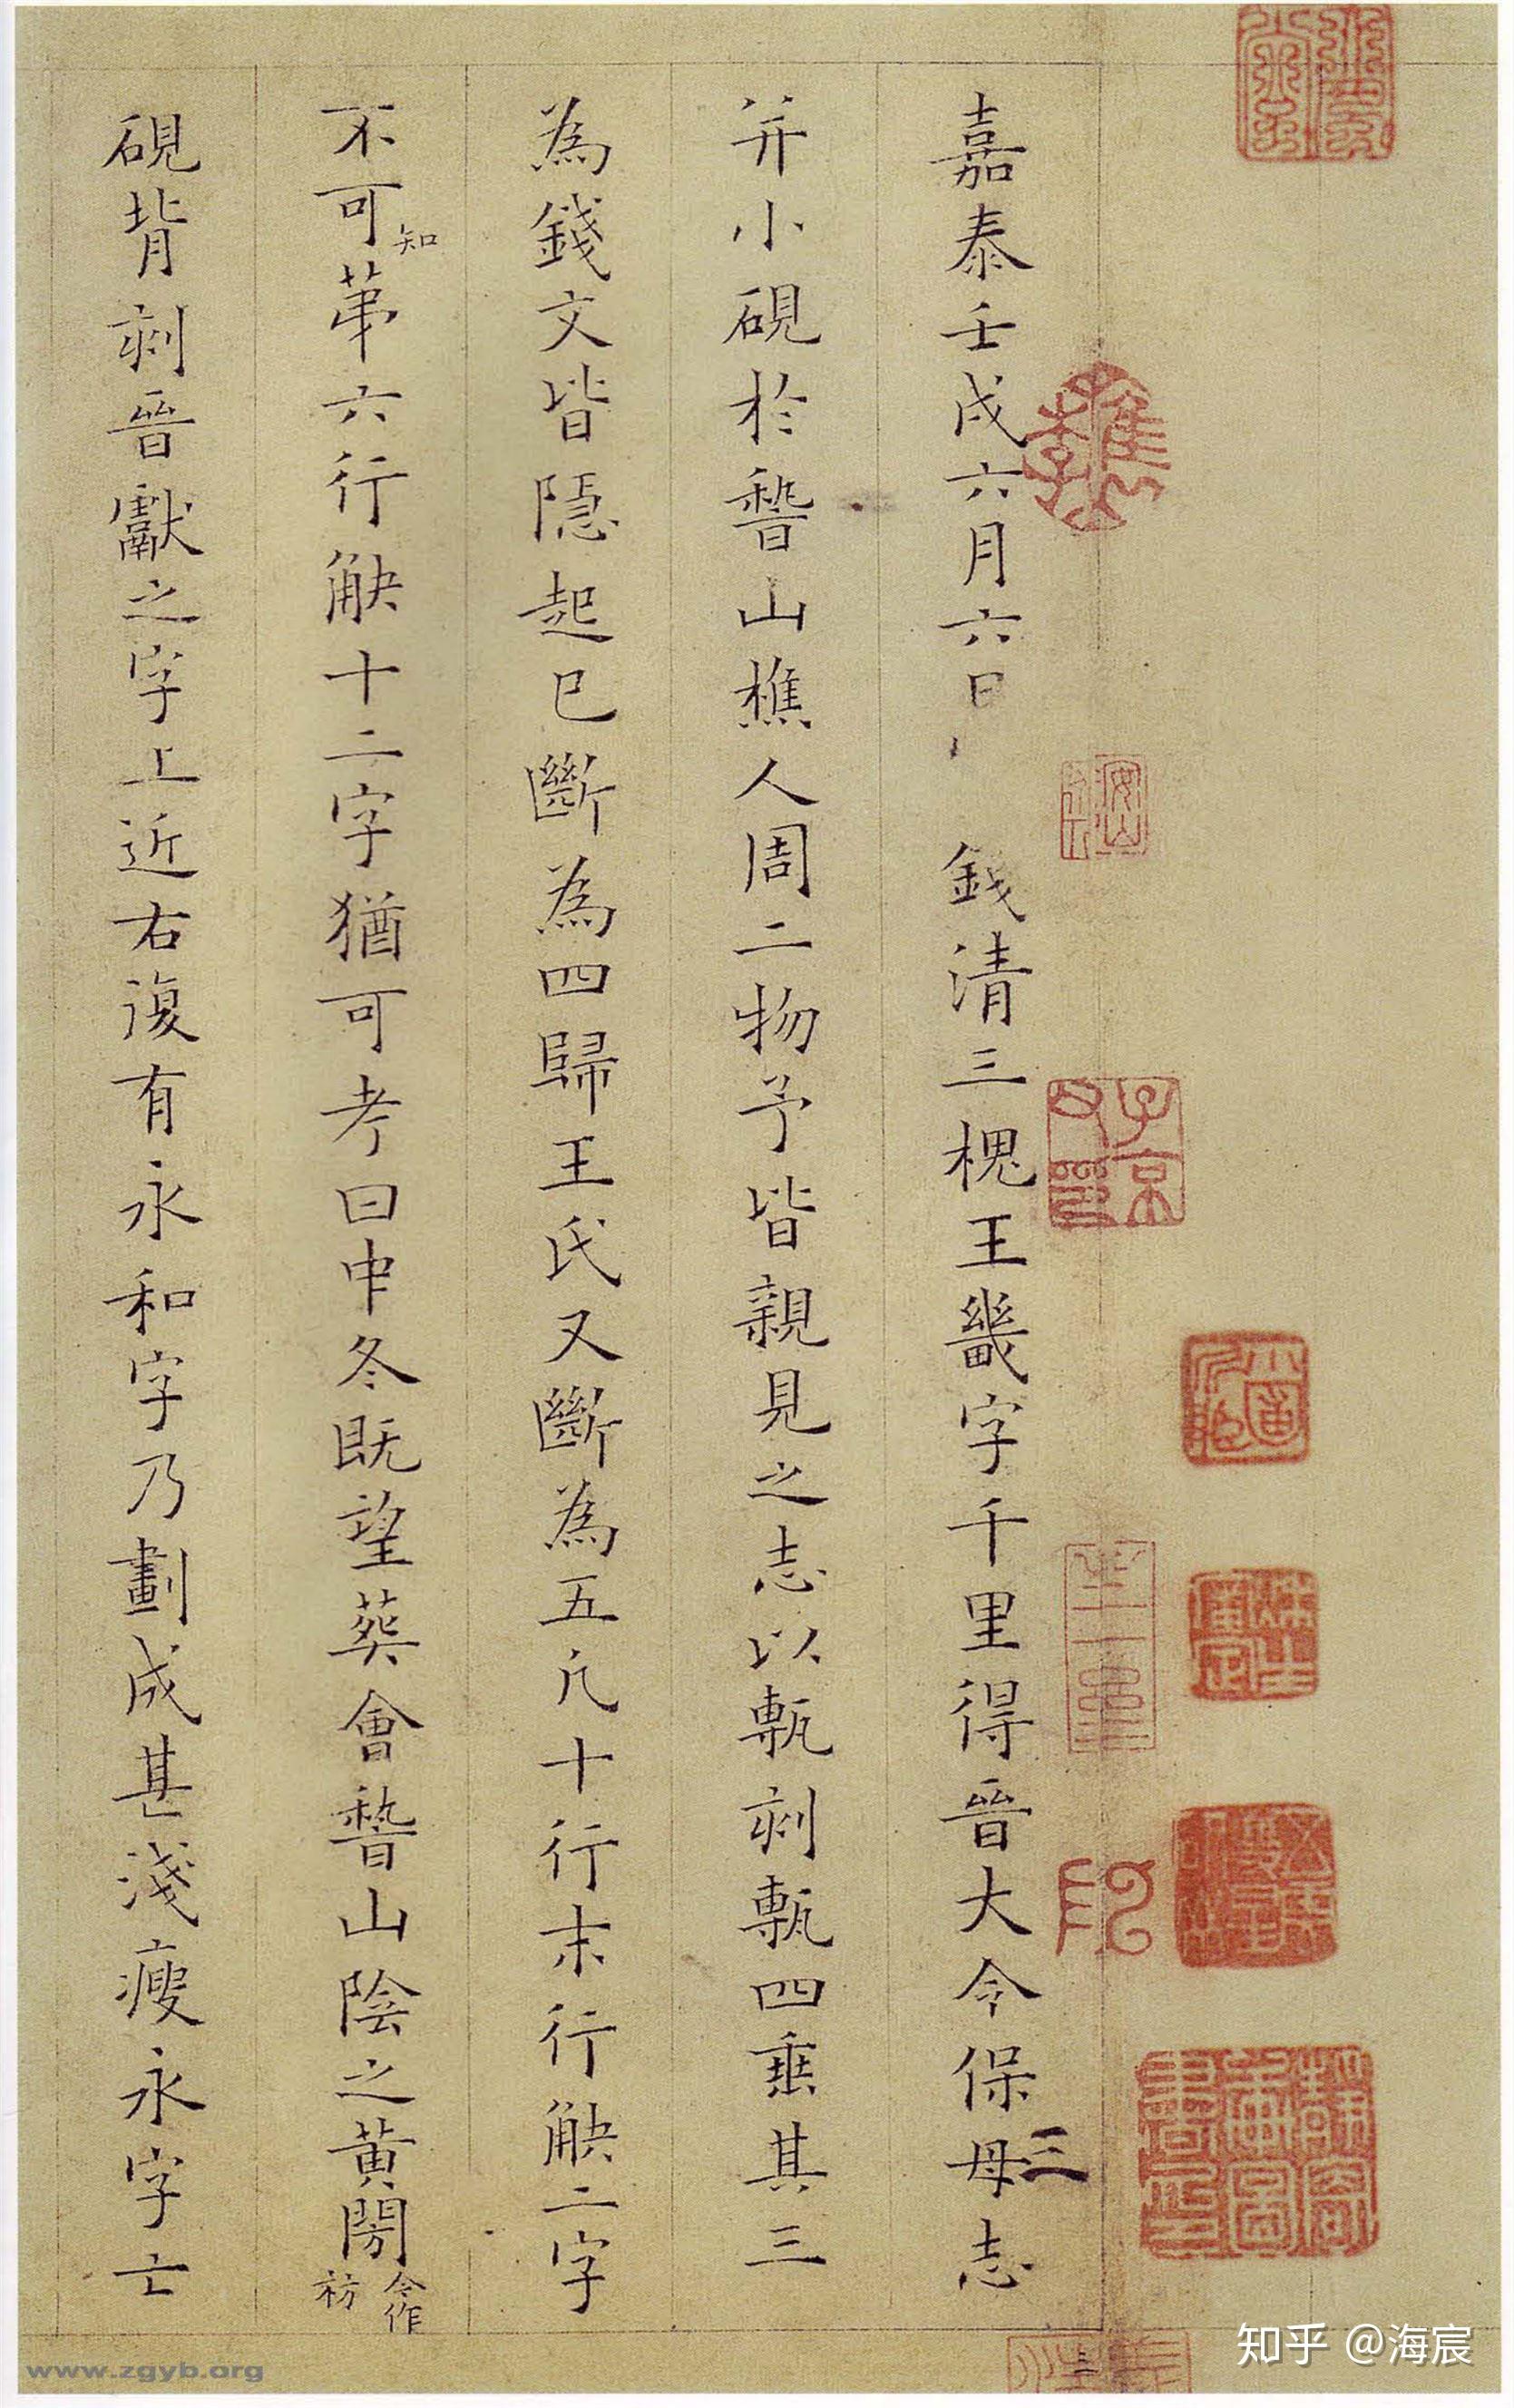 嘉泰壬戌六月六日 錢清三槐王畿字千里得晉大令保母志
三
并小硯於稽山樵人周二物予皆親見之志以甎刻甎四垂其三
為錢文皆隱起已斷為四歸王氏又斷為五凡十行末行缺二字
不可知第六行缺十二字猶可考曰中冬既望葬會稽山陰之黃閍今作祊
硯背刻晉獻之字上近右復有永和字乃劃成甚淺瘦永字亡
子京父印
知乎 @海宸
www.zgyb.org